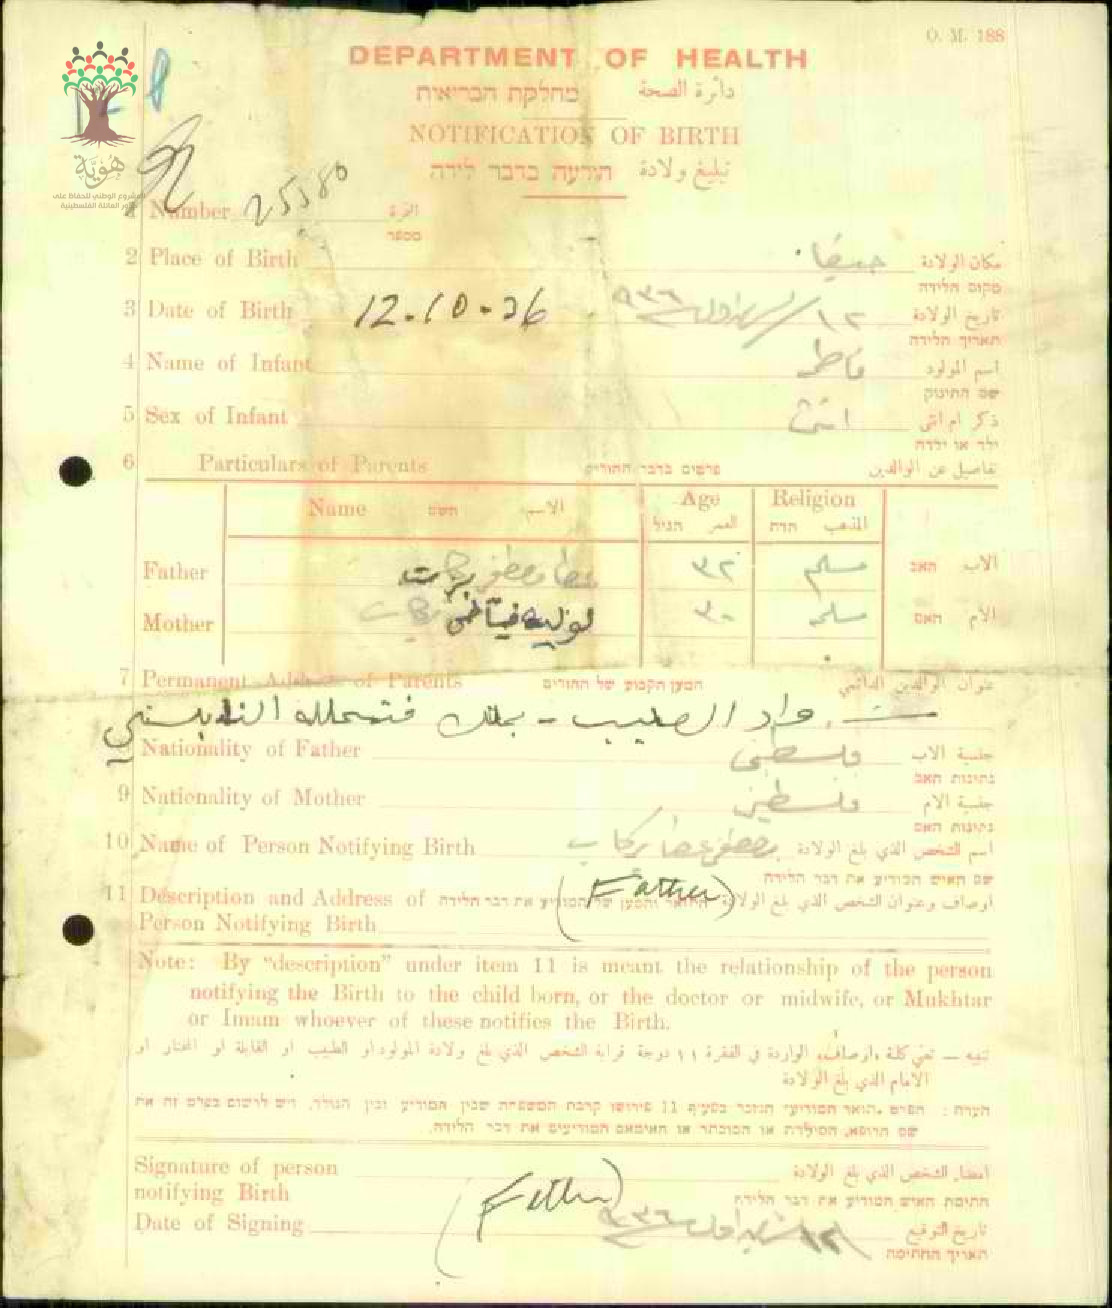 O. M. 188
DEPARTMENT OF HEALTH
מחלקת הבריאות دائرة الصحة
NOTIFICATION OF BIRTH
הודעה בדבר לידה تبليغ ولادة
هُوِيَّة
المشروع الوطني للحفاظ على
جذور العائلة الفلسطينية
1 Number 25580 النمرة
מספר
2 Place of Birth حيفا مكان الولادة
מקום הלידה
3 Date of Birth 12.10.36 ١٢ ٩٣٦ تاريخ الولادة
תאריך הלידה
4 Name of Infant اسم المولود
שם התינוק
5 Sex of Infant انثى ذكر ام انثى
ילד או ילדה
6 Particulars of Parents פרטים בדבר ההורים تفاصيل عن الوالدين
Name השם الاسم Age העمر הגיל Religion המذهب הדת
Father עطا مصطفى بركات ٣٢ مسلم الاب האב
Mother ٣٠ مسلمه الأم האם
7 Permanent Address of Parents המען הקבוע של ההורים عنوان الوالدين الدائمي
واد الصليب - بملك
8 Nationality of Father فلسطيني جنسية الاب
נתינות האב
9 Nationality of Mother فلسطيني جنسية الام
נתינות האם
10 Name of Person Notifying Birth مصطفى عطا بركات اسم الشخص الذي بلغ الولادة
שם האיש המודיע את דבר הלידה
11 Description and Address of התואר והמען של המודיע את דבר הלידה اوصاف وعنوان الشخص الذي بلغ الولادة
(Father)
Person Notifying Birth
Note: By “description” under item 11 is meant the relationship of the person
notifying the Birth to the child born, or the doctor or midwife, or Mukhtar
or Imam whoever of these notifies the Birth.
تنبيه — تعني كلمة «اوصاف» الواردة في الفقرة ١١ درجة قرابة الشخص الذي بلغ ولادة المولود او الطبيب او القابلة او المختار او
الامام الذي بلغ الولادة
הערה: הפרט „תואר המודיע״ הנזכר בסעיף 11 פירושו קרבת המשפחה שבין המודיע ובין הנולד. ויש לרשום בפרט זה את
שם הרופא, המילדת או המוכתר או האימאם המודיעים את דבר הלידה.
Signature of person امضاء الشخص الذي بلغ الولادة
notifying Birth (Father) חתימת האיש המודיע את דבר הלידה
Date of Signing ٩٣٦ تاريخ التوقيع
תאריך החתימה